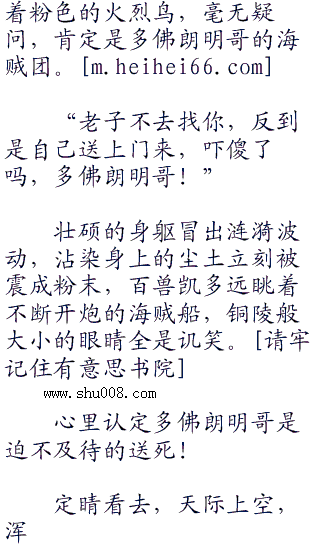 着粉色的火烈鸟，毫无疑
问，肯定是多佛朗明哥的海
贼团。[m.heihei66.com]
“老子不去找你，反到
是自己送上门来，吓傻了
吗，多佛朗明哥！”
壮硕的身躯冒出涟漪波
动，沾染身上的尘土立刻被
震成粉末，百兽凯多远眺着
不断开炮的海贼船，铜陵般
大小的眼睛全是讥笑。[请牢
记住有意思书院]
www.shu008.com
心里认定多佛朗明哥是
迫不及待的送死！
定睛看去，天际上空，
浑